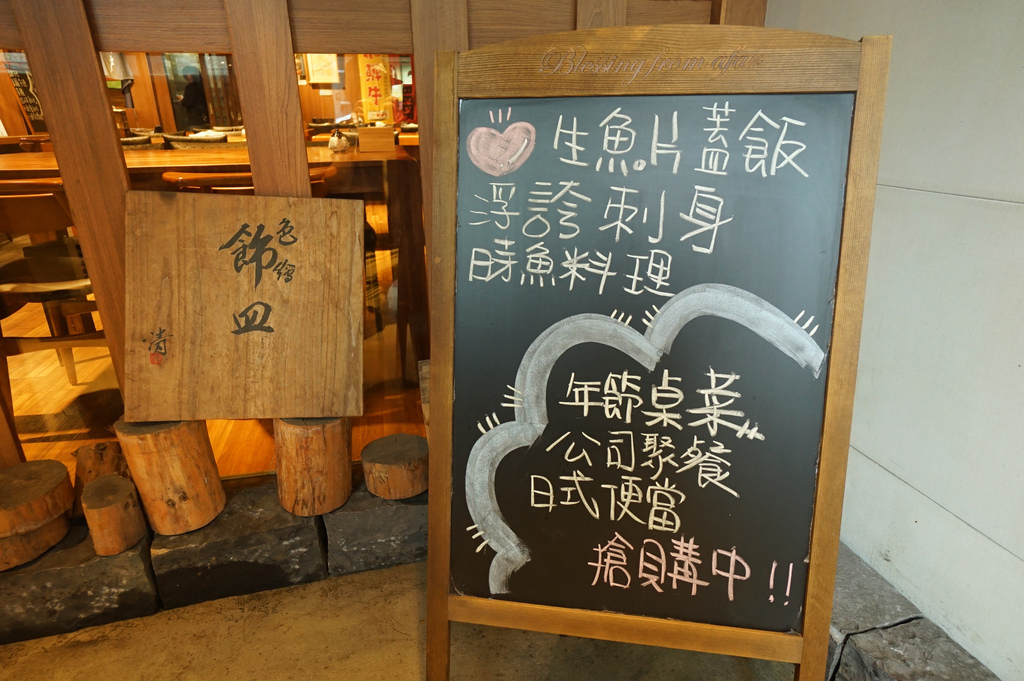 色繪
飾皿
清
Blessing from
生魚片蓋飯
浮誇刺身
時魚料理
年節桌菜
公司聚餐
日式便當
搶購中!!